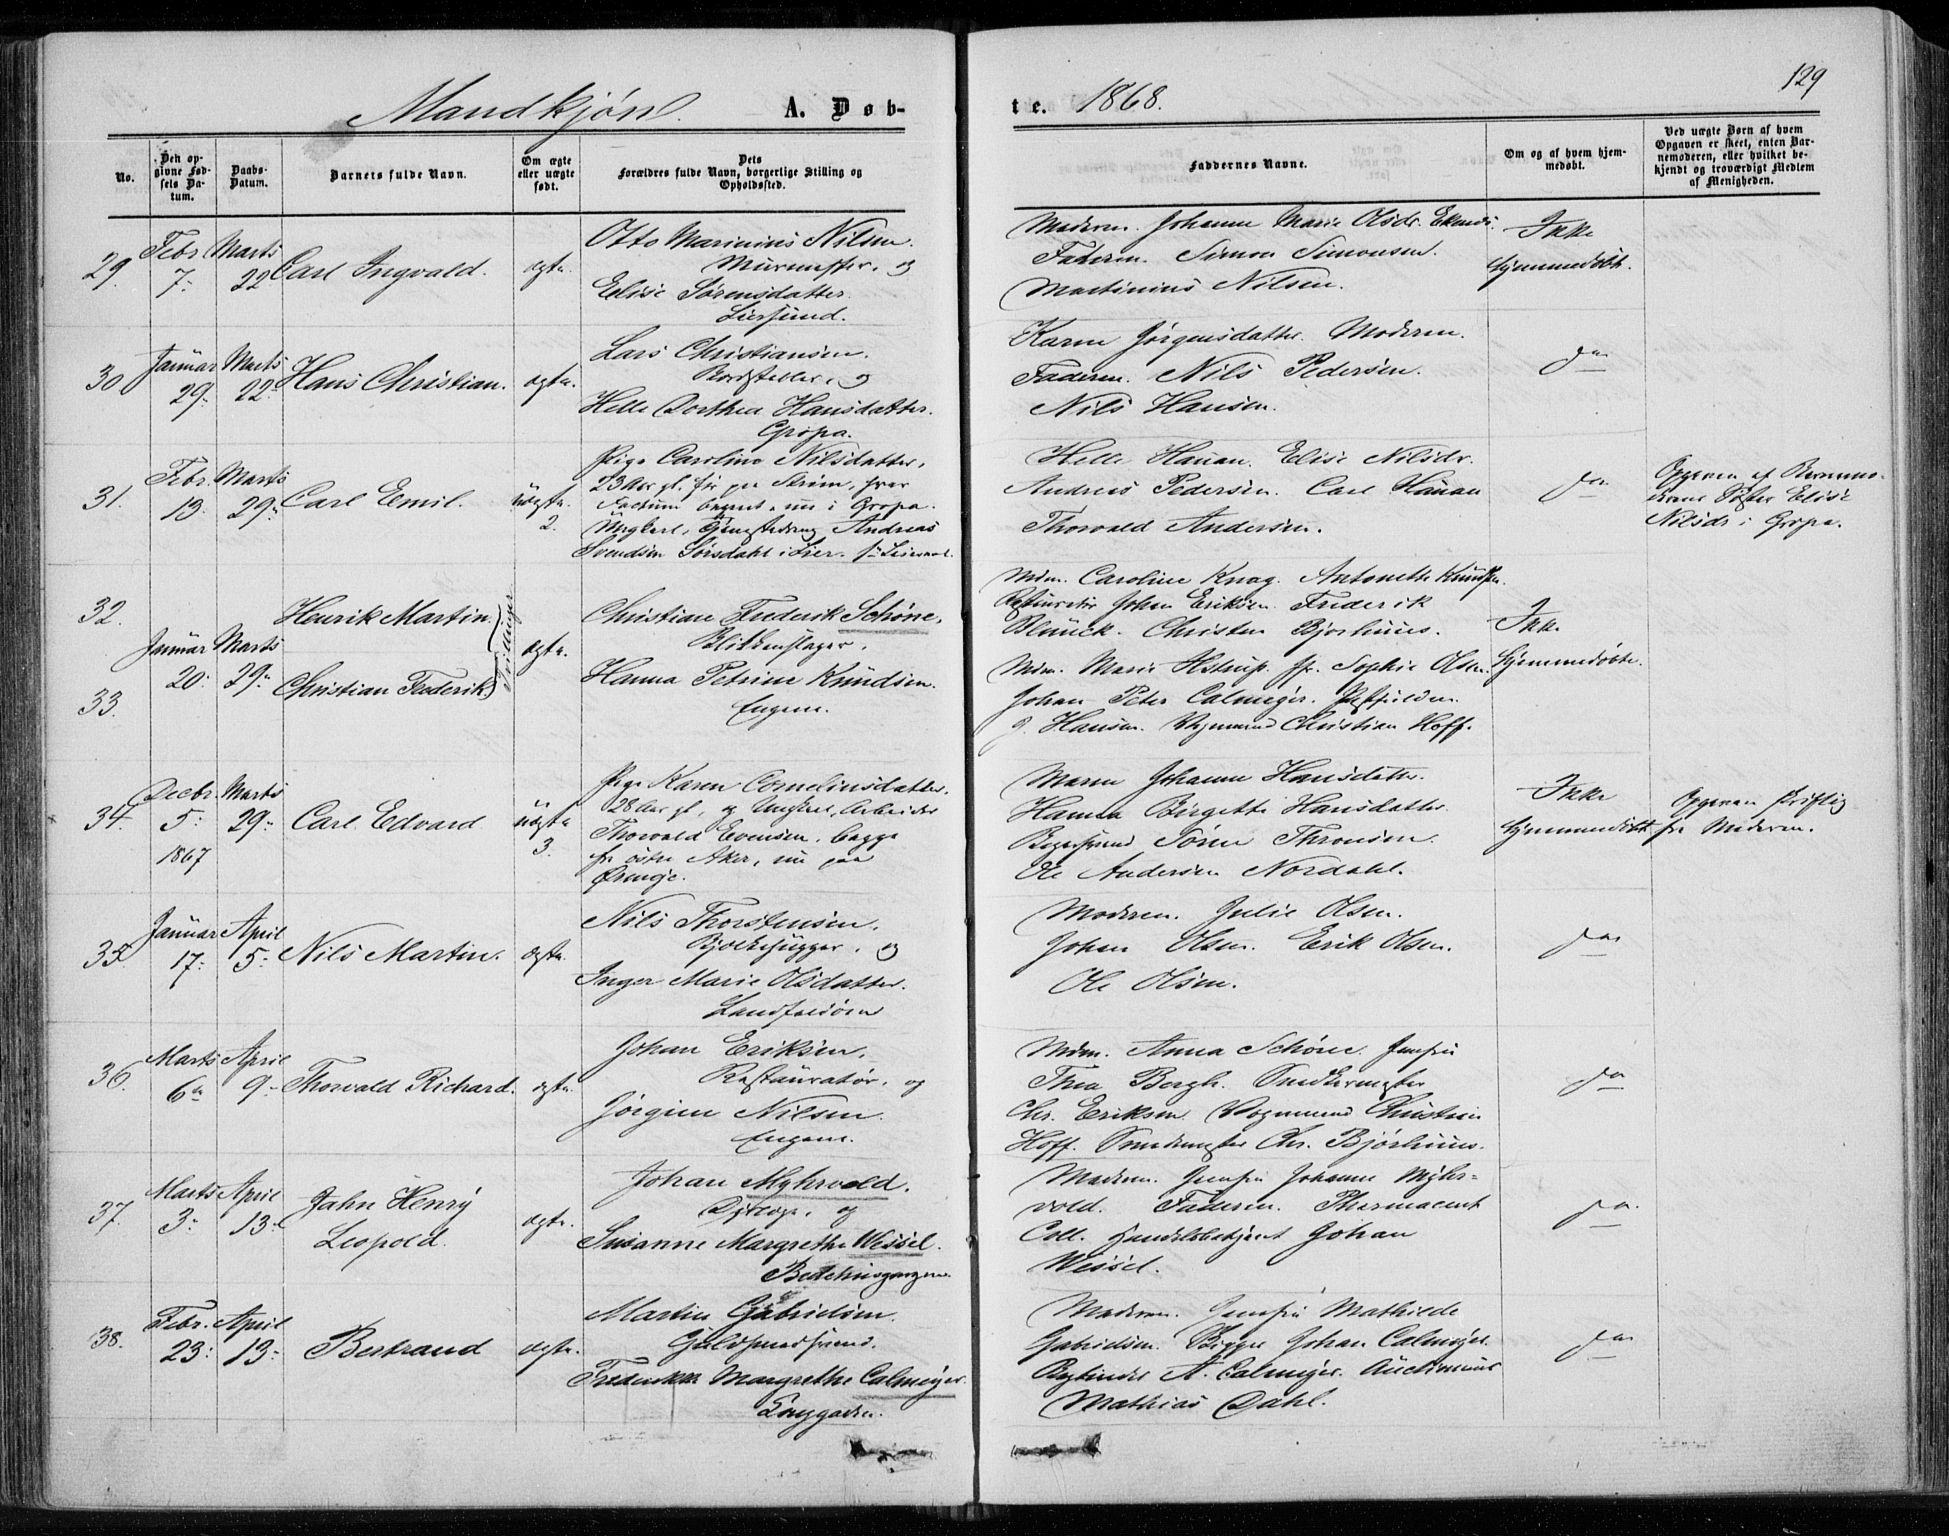 129
Mandkjøn. A. Døb-
te. 1868.
No.
Den op-
givne Fød-
sels Da-
tum.
Daabs-
Datum.
Barnets fulde Navn.
Om ægte
eller uægte
født.
Dets
Forældres fulde Navn, borgerlige Stilling og
Opholdssted.
Faddernes Navne.
Om og af hvem hjem-
medøbt.
Ved uægte Børn af hvem
Opgaven er skeet, enten Bar-
nemoderen, eller hvilket be-
kjendt og troværdigt Medlem
af Menigheden.
29.
Febr.
7
Marts
22
Carl Ingvald.
ægte.
Otto Marinius Nilsen.
Murmester, og
Elise Sørensdatter.
Moderen. Johanne Marie Olsdr.
Faderen. Simon Simonsen.
Martinius Nilsen.
Ikke
hjemmedøbt.
30
Januar
29
Marts
22
Hans Christian.
ægte.
Lars Christiansen.
Helle Dorthea Hansdatter.
Gropa.
Karen Jørgensdatter. Moderen.
Faderen. Nils Pedersen.
Nils Hansen.
do
31.
Febr.
13
Marts
29
Carl Emil.
uægte.
2.
Pige Caroline Nilsdatter,
23 Aar gl. før paa Strøm, hvor
Factum begaaet, nu i Gropa.
Ungkarl, Andreas
Svendsen Sørsdahl i Lier.
Helle Hanan. Elise Nilsdr.
Andreas Pedersen. Carl Hanan
Thorvald Andersen.
do
Opgaven af Barnemo-
derens Søster Elise
Nilsdr i Gropa.
32.
33.
Januar
20
Marts
29
Henrik Martin
Christian Frederik
Tvillinger
ægte.
Christian Frederik Schøne,
Blikkenslager.
Hanna Petrine Knudsen.
Engene.
Mdm. Caroline Knag. Antonette Knudsen.
Restauratør Johan Eriksen. Frederik
Blunck. Christen Bjørhuus.
Mdm. Marie Sophie Olsen.
Johan Peter Calmeyer.
Hansen. Vognmand Christian Hoff.
Ikke
hjemmedøbte.
34.
Decbr.
5
1867
Marts
29
Carl Edvard
uægte
3.
Pige Karen Corneliusdatter.
28 Aar gl, og Ungkarl, Arbeider
Thorvald Evensen, begge
fra østre Aker, nu paa
Maren Johanne Hansdatter.
Hanna Birgette Hansdatter.
Søren Thronsen.
Ole Andersen Nordahl.
Ikke
hjemmedøbt
Opgaven skriftlig
fra Moderen.
35
Januar
17
April
5
Nils Martin.
ægte.
Nils Thorstensen.
Bjelkehugger, og
Inger Marie Olsdatter.
Landfaldøen
Moderen. Julie Olsen.
Johan Olsen. Erik Olsen.
Ole Olsen.
do
36.
Marts
6
April
9
Thorvald Richard.
ægte.
Johan Eriksen.
Restauratør, og
Jørgine Nilsen.
Engene.
Mdm. Anna Schøne. Jomfru
Thea Bergh. Snedkermester
Chr. Eriksen. Vognmand Christian
Hoff. Smedemester Chr. Bjørhuus.
do
37.
Marts
3
April
13
Jahn Henry
Leopold.
ægte.
Johan Myhrvold.
og
Susanne Margrethe Wessel.
Moderen. Jomfru Johanne Myhr-
vold. Faderen. Pharmaceut
Coll. Handelsbetjent Johan
Wessel.
do
38.
Febr.
23
April
13
Bertrand
ægte.
Martin Gabrielsen.
Guldsmedsvend.
Frederikke Margrethe Calmeyer.
Moderen. Jomfru Mathilde
Gabrielsen. Johan Calmeyer.
A. Calmeyer.
Mathias Dahl.
do